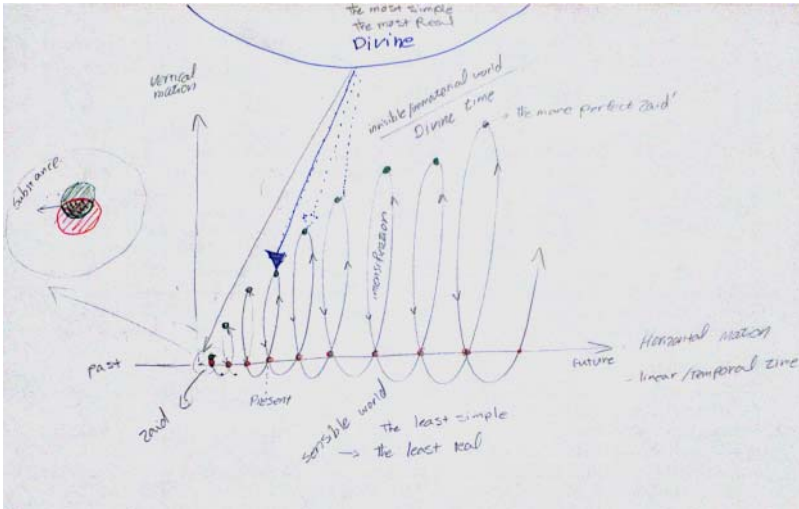 the most simple
the most Real
Divine
vertical
motion
invisible/immaterial world
Divine time
the more perfect zaid'
substance
intensification
past
Future
Horizontal Motion
- linear/temporal time
zaid
Present
sensible world
The least simple
→ the least real